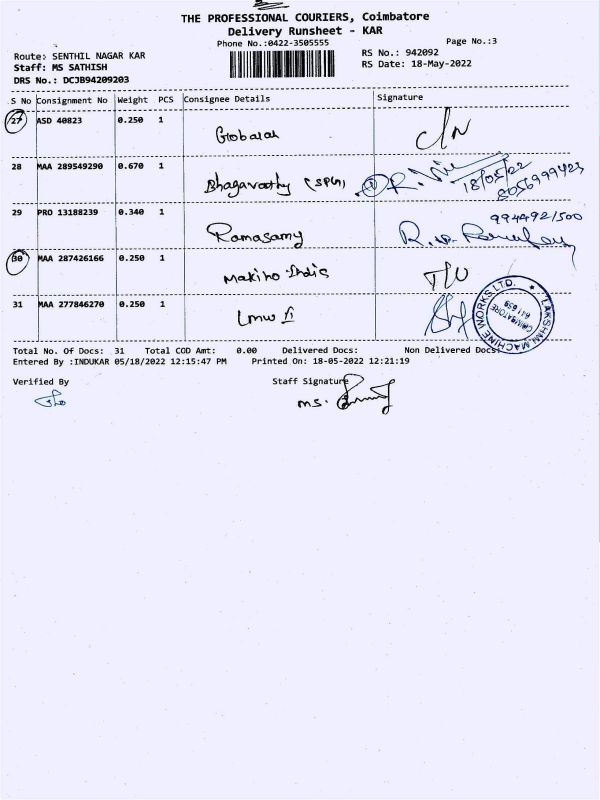 THE PROFESSIONAL COURIERS, Coimbatore
Delivery Runsheet - KAR
Phone No.:0422-3505555
Page No.:3
Route: SENTHIL NAGAR KAR
RS No.: 942092
Staff: MS SATHISH
RS Date: 18-May-2022
DRS No.: DCJB94209203
S No Consignment No Weight PCS Consignee Details Signature
27 ASD 40823 0.250 1
28 MAA 289549290 0.670 1 Bhagavathy (SPG)
18/05/22
8056999423
29 PRO 13188239 0.340 1 Ramasamy
994492/500
30 MAA 287426166 0.250 1 Makino India
31 MAA 277846270 0.250 1 Lmw
LAKSHMI MACHINE WORKS LTD.
COIMBATORE
Total No. Of Docs: 31 Total COD Amt: 0.00 Delivered Docs: Non Delivered Docs:
Entered By :INDUKAR 05/18/2022 12:15:47 PM Printed On: 18-05-2022 12:21:19
Verified By Staff Signature
MS.